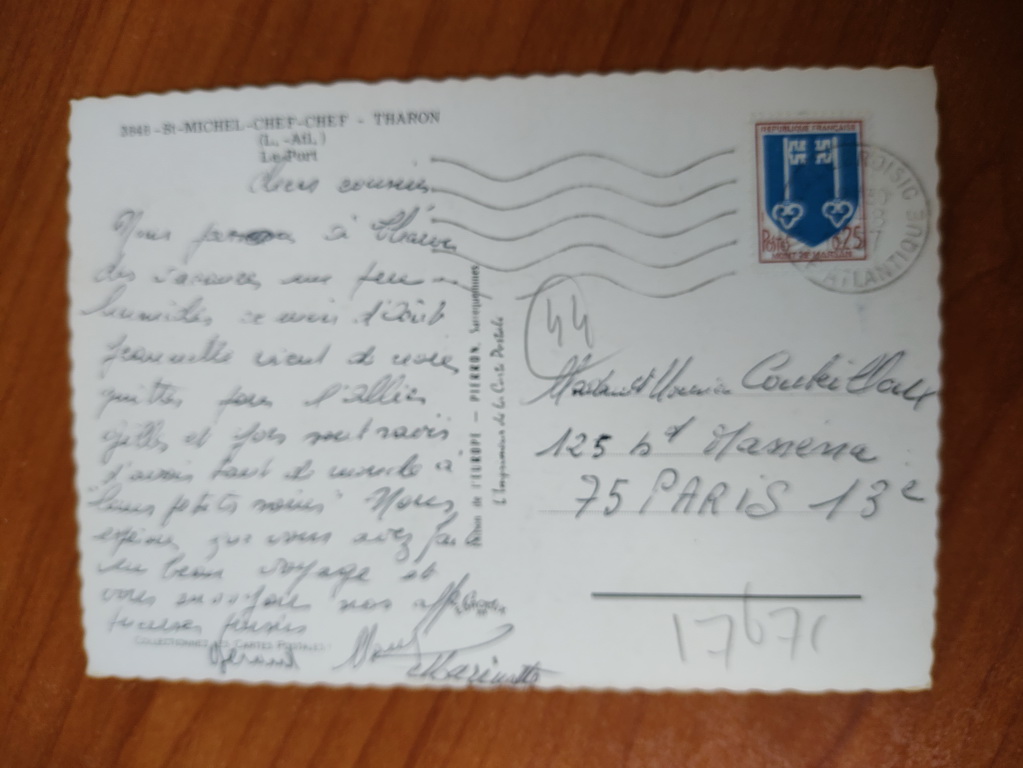 3848 - St-MICHEL-CHEF-CHEF - THARON
(L. -Atl.)
Le Port
Chers cousins
Nous à
des vacances un peu
humides ce mois d'Août
Jeannette vient de nous
quitter pour l'Allier
gilles et sont ravis
d'avoir tant de monde à
leurs petits soins Nous
espérons que vous avez fait
un beau voyage et
vous envoyons nos affectueuses
pensées
COLLECTIONNEZ LES CARTES POSTALES
Gérard
Marinette
de l'EUROPE - PIERRON, Sarreguemines
L'Imprimeur de la Carte Postale
REPUBLIQUE FRANÇAISE
Postes 0,25
MONT-DE-MARSAN
ATLANTIQUE
44
Madame et Monsieur
125 bd Massena
75 PARIS 13e